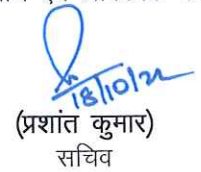 18/10/22
(प्रशांत कुमार)
सचिव